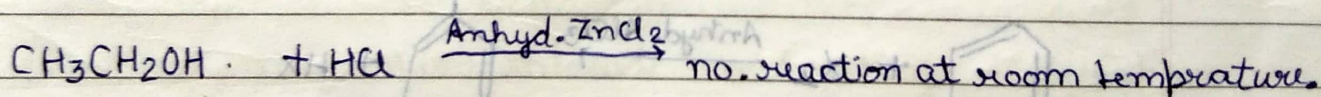 CH3CH2OH. + HCl Anhyd. ZnCl2 no. reaction at room temprature.